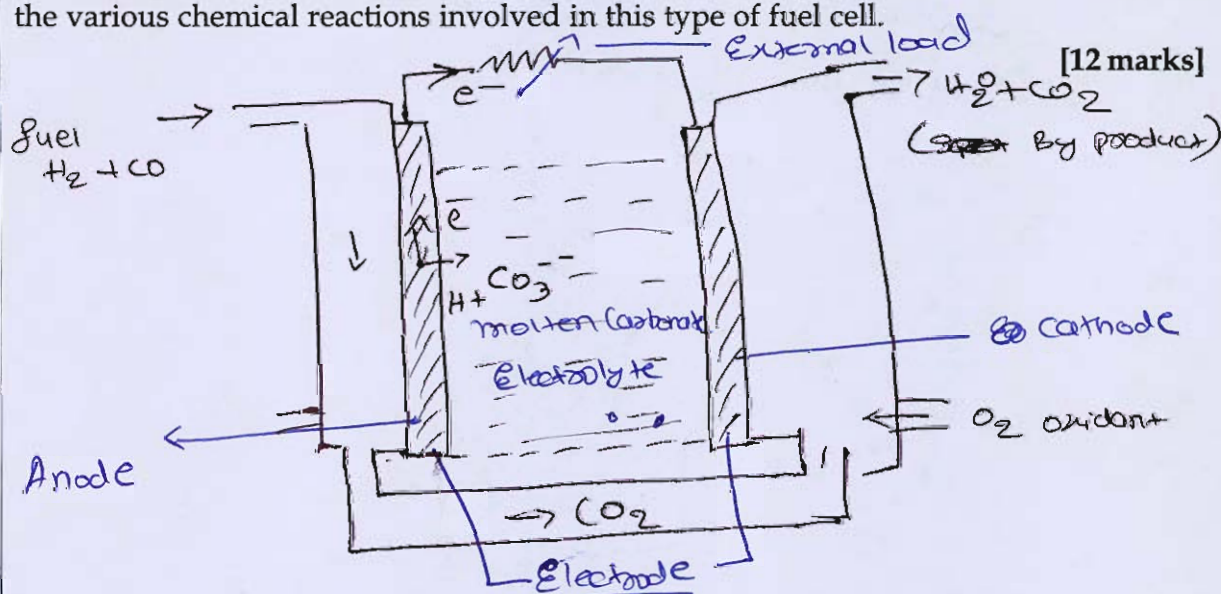 the various chemical reactions involved in this type of fuel cell.
External load
[12 marks]
e-
=> H2O + CO2
(By product)
fuel
H2 + CO
e
CO3--
H+
molten Carbonate
Electrolyte
Cathode
O2 oxidant
Anode
→ CO2
Electrode